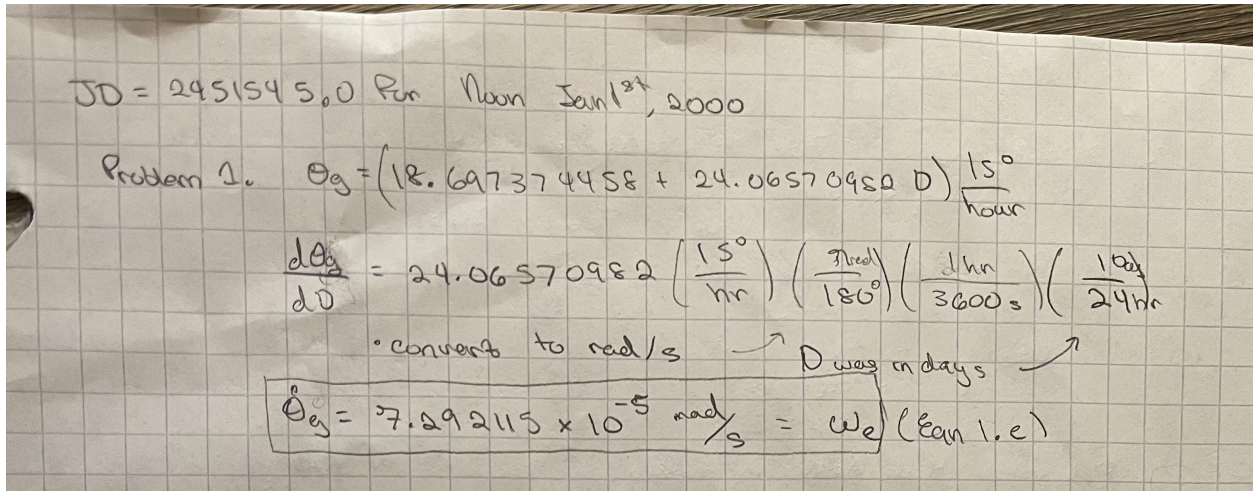 JD = 2451545.0 for Noon Jan 1st, 2000
Problem 1. θg = (18.697374458 + 24.06570982 D) 15°/hour
dθg/dD = 24.06570982 (15°/hr) (π rad/180°) (1 hr/3600 s) (1 Day/24 hr)
• convert to rad/s ↗ D was in days ↗
θ̇g = 7.292115 × 10⁻⁵ rad/s = ωe (Eqn 1.e)